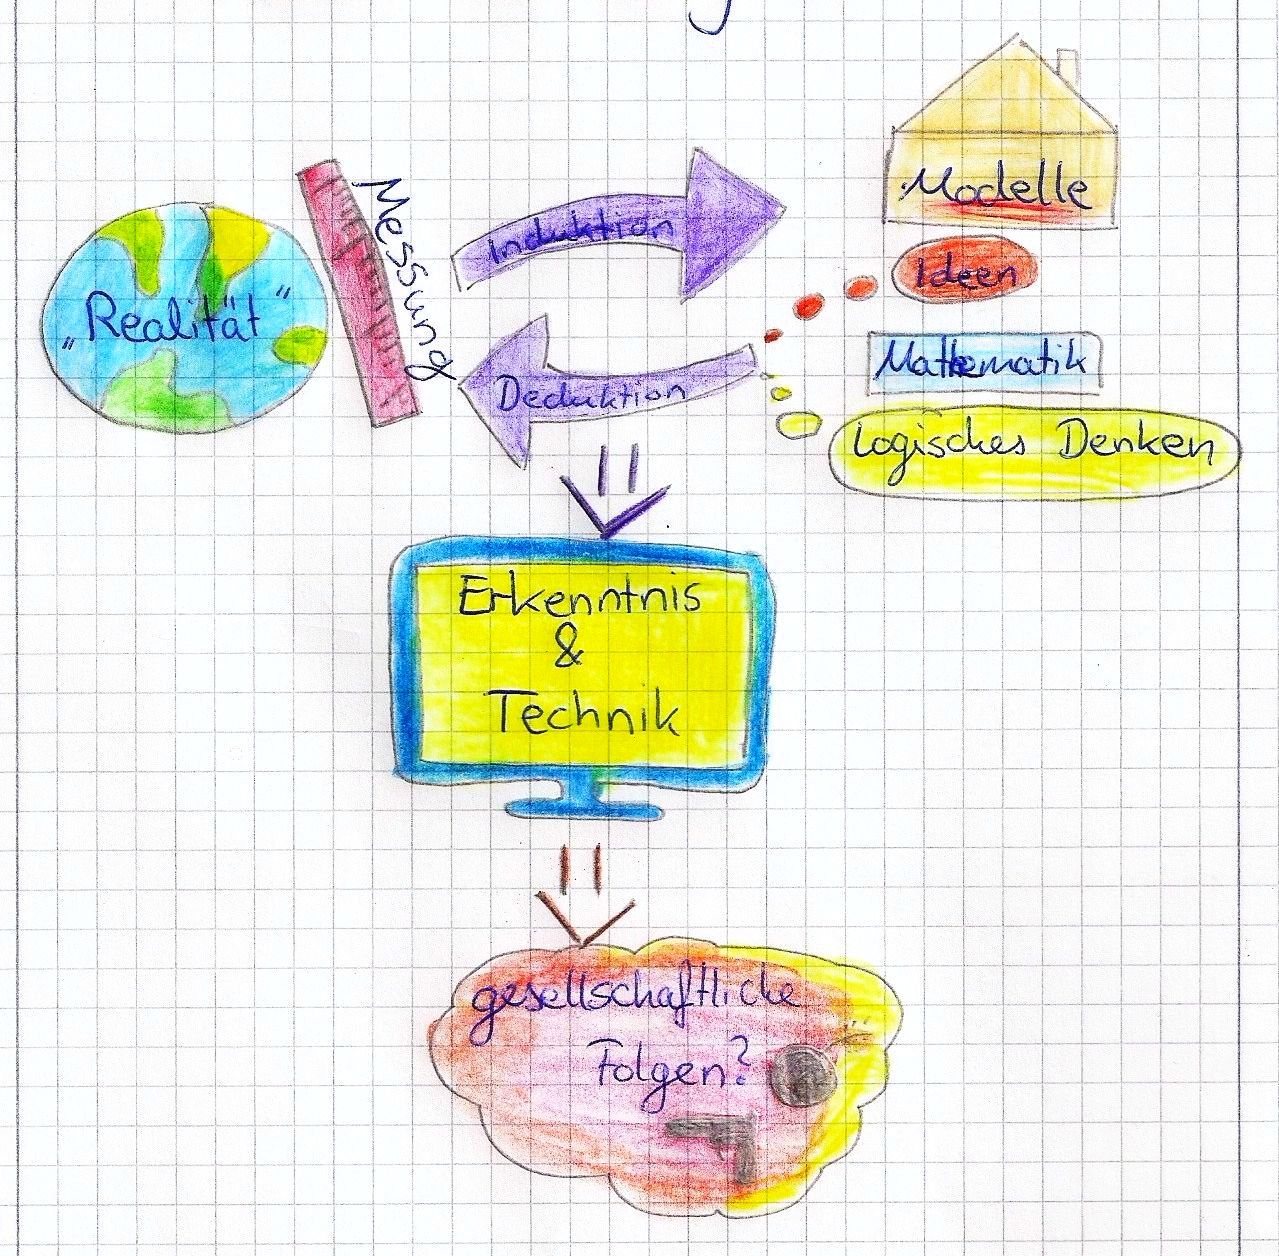 Modelle
Messung
Induktion
Ideen
„Realität“
Mathematik
Deduktion
logisches Denken
Erkenntnis
&
Technik
gesellschaftliche
Folgen?